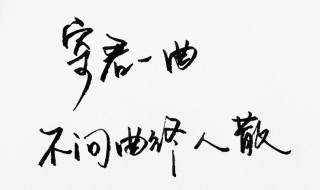 寄君一曲
不问曲终人散